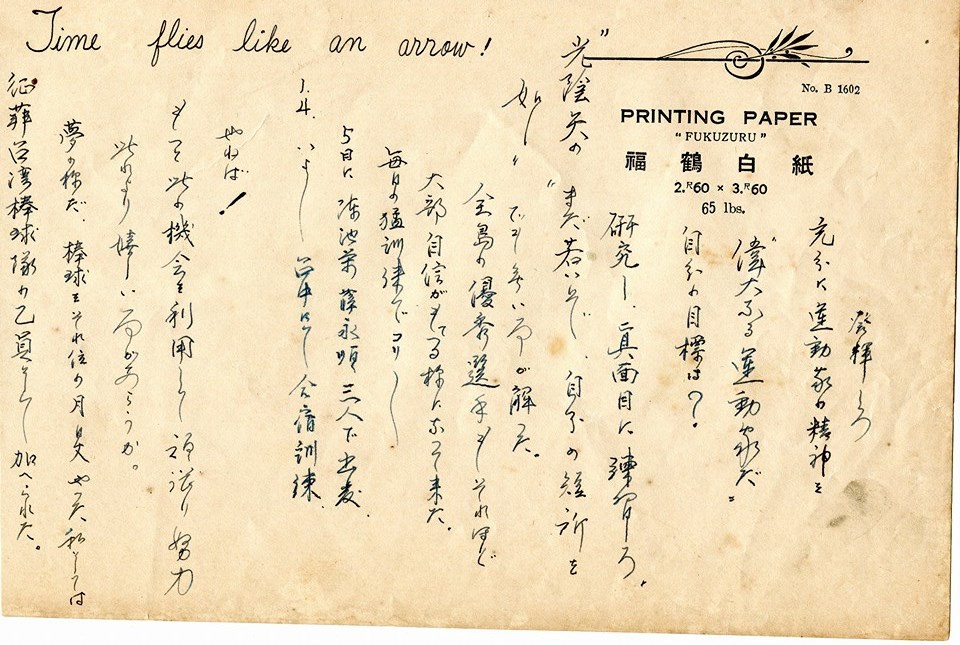 Time flies like an arrow!
No. B 1602
PRINTING PAPER
"FUKUZURU"
福鶴白紙
2.R60 × 3.R60
65 lbs.
征菲台湾棒球隊の乙員として加へられた。
夢の様だ、棒球をそれ位の月日やった私としては
此れより嬉しい而があらうか。
もっと此の機会を利用して頑張り努力
やれば！
1.4. いよいよ台中にて合宿訓練.
5日に 陳池策 薛永順 三人で出発.
毎日の猛訓練でコリコリ
大部自信がもてる様になって来た。
全島の優秀選手もそれほど
でも無い而が解った。
"光陰矢の
如し"
"まだ若いぞ、自分の短所を
研究し、真面目に練習しろ。"
自分の目標は？
"偉大なる運動家だ"
充分に運動家の精神を
発揮しろ